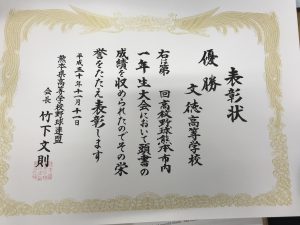 表彰状
優勝
文徳高等学校
右は第 回高校野球熊本市内
一年生大会において頭書の
成績を収められたのでその栄
誉をたたえ表彰します
平成三十年十一月十一日
熊本県高等学校野球連盟
会長 竹下文則